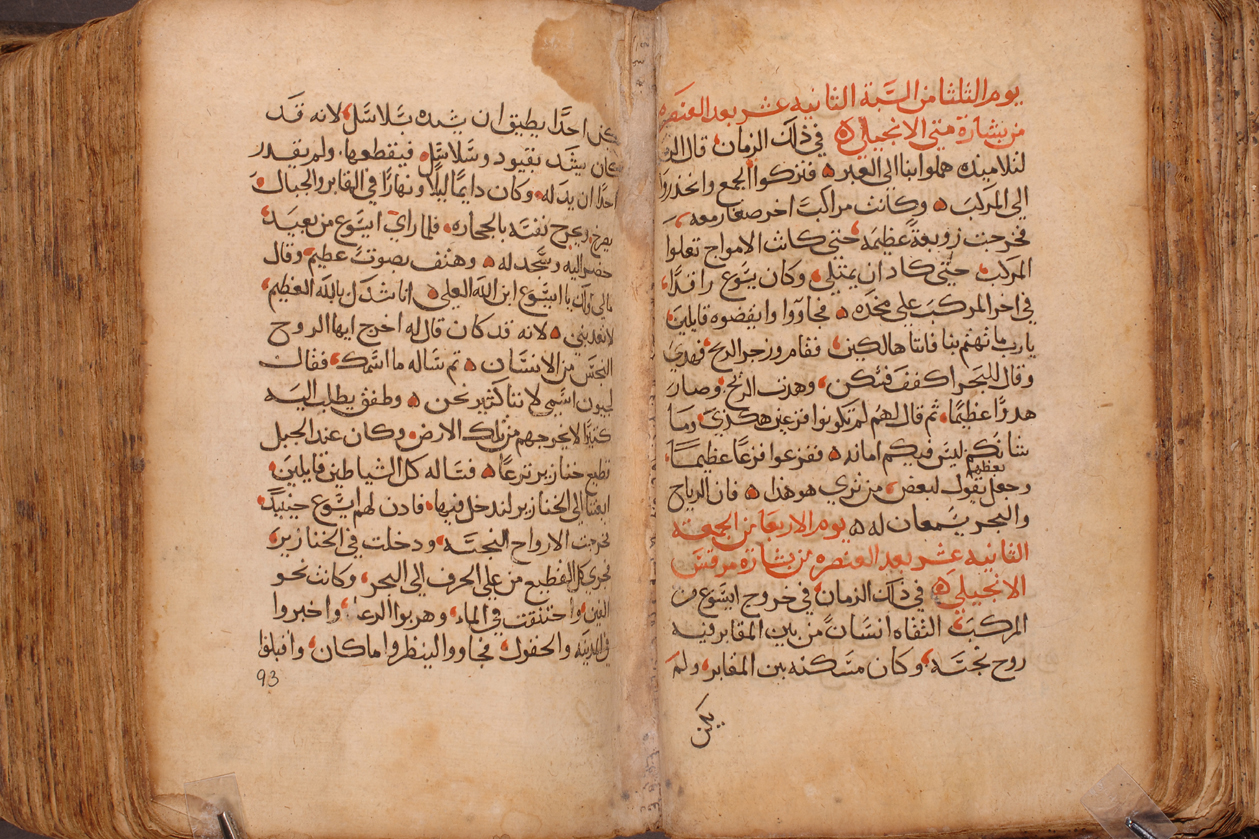 يوم الثلثا من السبة الثانيه عشر بعد العنصره
من بشارة متي الانجيلي في ذلك الزمان قال الرب
لتلاميذه هلموا بنا الى العبر فتركوا الجمع وانحدروا
الى المركب وكانت مراكب اخر صغار معه
فخرجت زوبعة عظيمة حتي كانت الامواج تعلوا
المركب حتي كاد ان يمتلي وكان يسوع راقدا
في اخر المركب على مخده فجاووا وايقضوه قايلين
يارب ما تهتم بنا فاننا هالكين فقام وزجر الريح فهدي
وقال للبحر اكفف فسكن وهدت الريح وصار
هدوا عظيما ثم قال لهم لم تكونوا فزعين هكذي وما
شانكم ليس فيكم امانه ففزعوا فزعا عظيما
وجعل يقول بعظهم لبعض من تري هو هذا فان الرياح
والبحر يسمعان له يوم الاربعا من الجمعة
الثانيه عشر بعد العنصره من بشارة مرقس
الانجيلي في ذلك الزمان في خروج ايسوع من
المركب التقاه انسان من بين المقابر فيه
روح نجسه وكان مسكنه بين المقابر ولم
يكن
يكن احدا يطيق ان يشده بسلاسل لانه قد
كان يشد بقيود وسلاسل فيقطعها ولم يقدر
احدا ان يدله وكان دايما ليلا ونهارا في المقابر والجبال
يصرخ ويجرح نفسه بالحجاره فلما راي ايسوع من بعيد
حضر اليه وسجد له وهتف بصوت عظيم وقال
مالي ولك يا ايسوع ابن الله العلي اناشدك بالله العظيم
لا تعذبني لانه قد كان قال له اخرج ايها الروح
النجس من الانسان ثم ساله ما اسمك فقال
ليون اسمي لاننا كثير نحن وطفق يطلب اليه
كثيرا لا يخرجهم من تلك الارض وكان عند الجبل
قطيع خنازير ترعا فساله كل الشياطين قايلين
ابعثنا الى الخنازير لندخل فيها فاذن لهم ايسوع حينيد
فخرجت الارواح النجسه ودخلت في الخنازير
فجري كل القطيع من على الجرف الى البحر وكانت نحو
الفين واختنقت في الماء وهربوا الرعا واخبروا
في المدينه والحقول فجاووا لينظروا ما كان واقبلوا
93